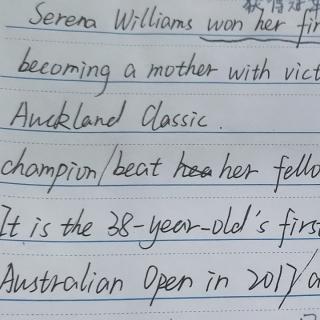 获得冠军
Serena Williams won her fir
becoming a mother with vict
Auckland Classic.
champion/beat her fello
It is the 38-year-old's firs
Australian Open in 2017/a